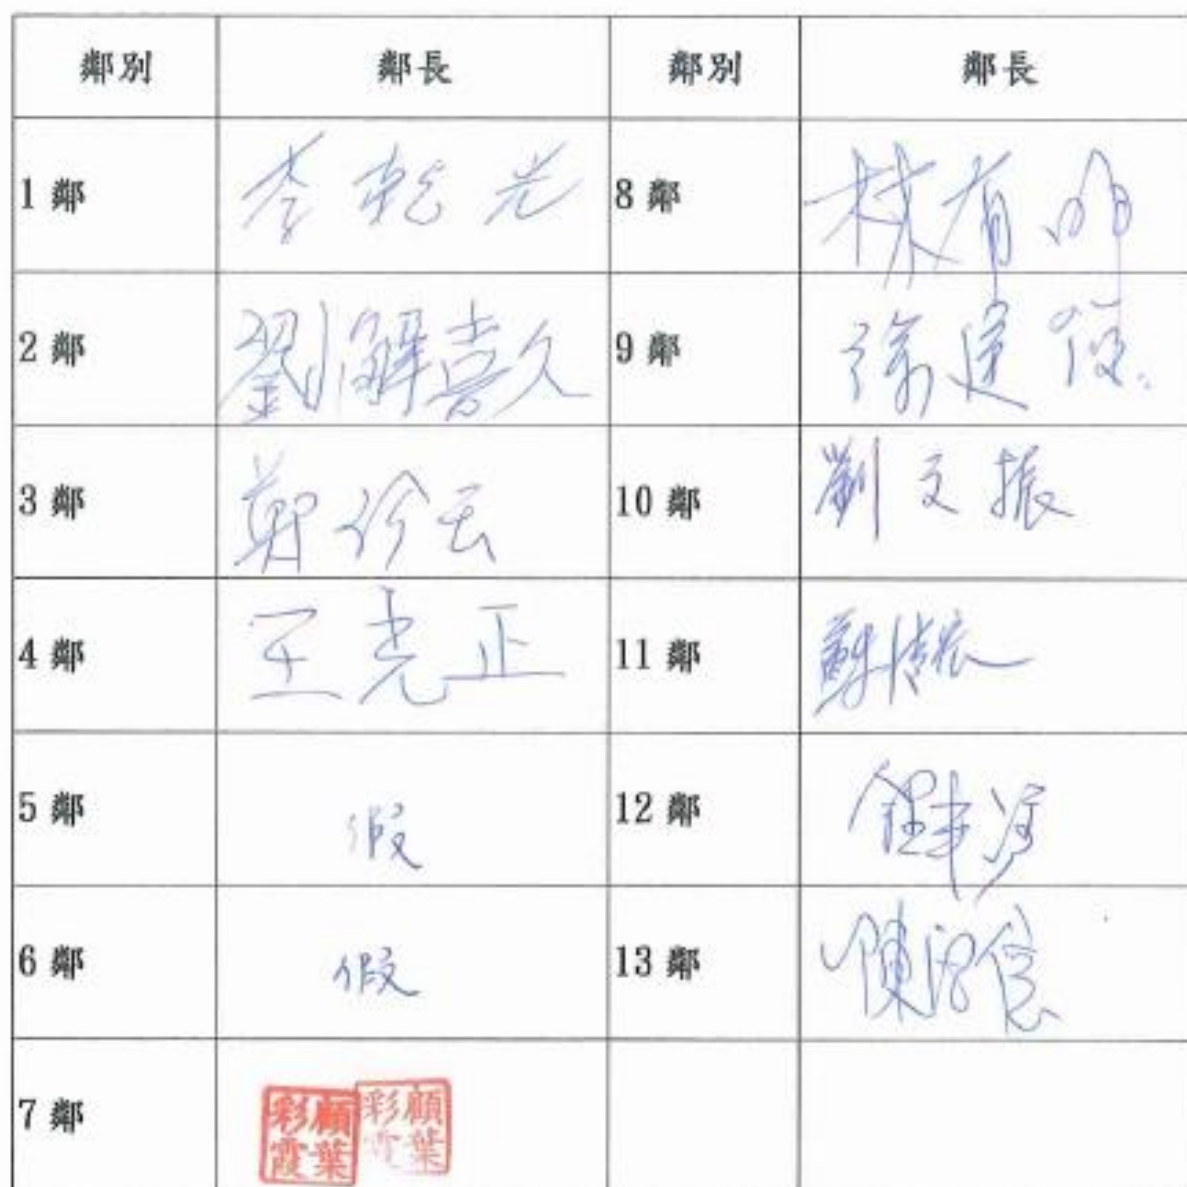 鄰別 鄰長 鄰別 鄰長
1 鄰 李乾光 8 鄰 林有
2 鄰 劉解喜久 9 鄰 徐建
3 鄰 鄭 云 10 鄰 劉文振
4 鄰 王光正 11 鄰 蘇清
5 鄰 假 12 鄰
6 鄰 假 13 鄰 陳
7 鄰 顧葉彩霞 顧葉彩霞